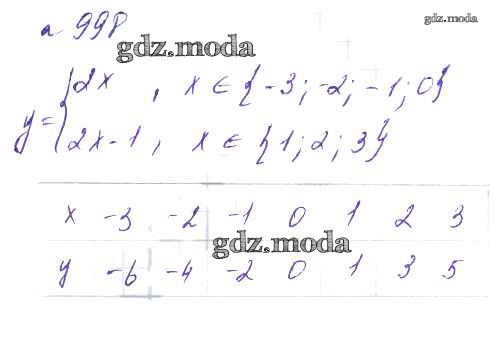 № 998
gdz.moda
gdz.moda
y = { 2x , x ∈ {-3; -2; -1; 0}
2x-1, x ∈ {1; 2; 3}
x -3 -2 -1 0 1 2 3
gdz.moda
y -6 -4 -2 0 1 3 5